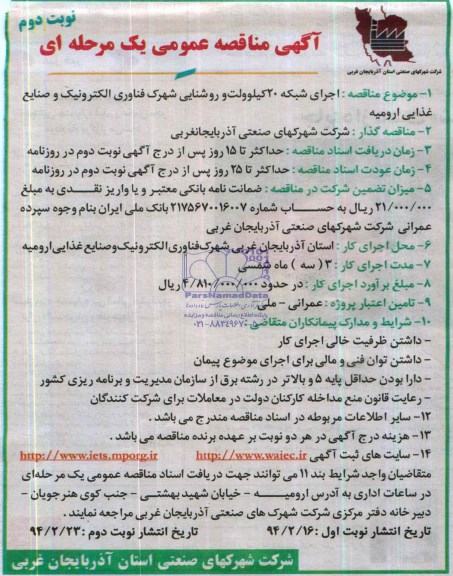 نوبت دوم
آگهی مناقصه عمومی یک مرحله ای
شرکت شهرکهای صنعتی استان آذربایجان غربی
۱- موضوع مناقصه : اجرای شبکه ۲۰کیلوولت و روشنایی شهرک فناوری الکترونیک و صنایع
غذایی ارومیه
۲- مناقصه گذار : شرکت شهرکهای صنعتی آذربایجانغربی
۳- زمان دریافت اسناد مناقصه : حداکثر تا ۱۵ روز پس از درج آگهی نوبت دوم در روزنامه
۴- زمان عودت اسناد مناقصه : حداکثر تا ۲۵ روز پس از درج آگهی نوبت دوم در روزنامه
۵- میزان تضمین شرکت در مناقصه : ضمانت نامه بانکی معتبر و یا واریز نقدی به مبلغ
۲۱/۰۰۰/۰۰۰ ریال به حساب شماره ۲۱۷۵۶۷۰۰۱۶۰۰۷ بانک ملی ایران بنام وجوه سپرده
عمرانی شرکت شهرکهای صنعتی آذربایجان غربی
۶- محل اجرای کار : استان آذربایجان غربی شهرک فناوری الکترونیک وصنایع غذایی ارومیه
۷- مدت اجرای کار : ۳ ( سه ) ماه شمسی
۸- مبلغ برآورد اجرای کار : در حدود ۴/۸۱۰/۰۰۰/۰۰۰ ریال
ParsNamadData
۹- تامین اعتبار پروژه : عمرانی - ملی
پایگاه اطلاع رسانی مناقصه و مزایده
۱۰- شرایط و مدارک پیمانکاران متقاضی :
۰۲۱-۸۸۳۴۹۶۷۰
- داشتن ظرفیت خالی اجرای کار
- داشتن توان فنی و مالی برای اجرای موضوع پیمان
- دارا بودن حداقل پایه ۵ و بالاتر در رشته برق از سازمان مدیریت و برنامه ریزی کشور
- رعایت قانون منع مداخله کارکنان دولت در معاملات برای شرکت کنندگان
۱۲- سایر اطلاعات مربوطه در اسناد مناقصه مندرج می باشد .
۱۳- هزینه درج آگهی در هر دو نوبت بر عهده برنده مناقصه می باشد .
۱۴- سایت های ثبت آگهی http://www.waiec.ir http://www.iets.mporg.ir
متقاضیان واجد شرایط بند ۱۱ می توانند جهت دریافت اسناد مناقصه عمومی یک مرحله‌ای
در ساعات اداری به آدرس ارومیه - خیابان شهید بهشتی - جنب کوی هنرجویان -
دبیر خانه دفتر مرکزی شرکت شهرک های صنعتی آذربایجان غربی مراجعه نمایند .
تاریخ انتشار نوبت اول : ۹۴/۲/۱۶ تاریخ انتشار نوبت دوم : ۹۴/۲/۲۳
شرکت شهرکهای صنعتی استان آذربایجان غربی